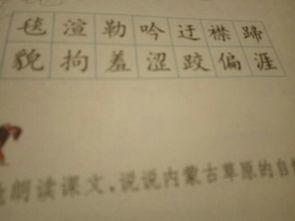 毯 渲 勒 吟 迂 襟 蹄
貌 拘 羞 涩 跤 偏 涯
朗读课文，说说内蒙古草原的自